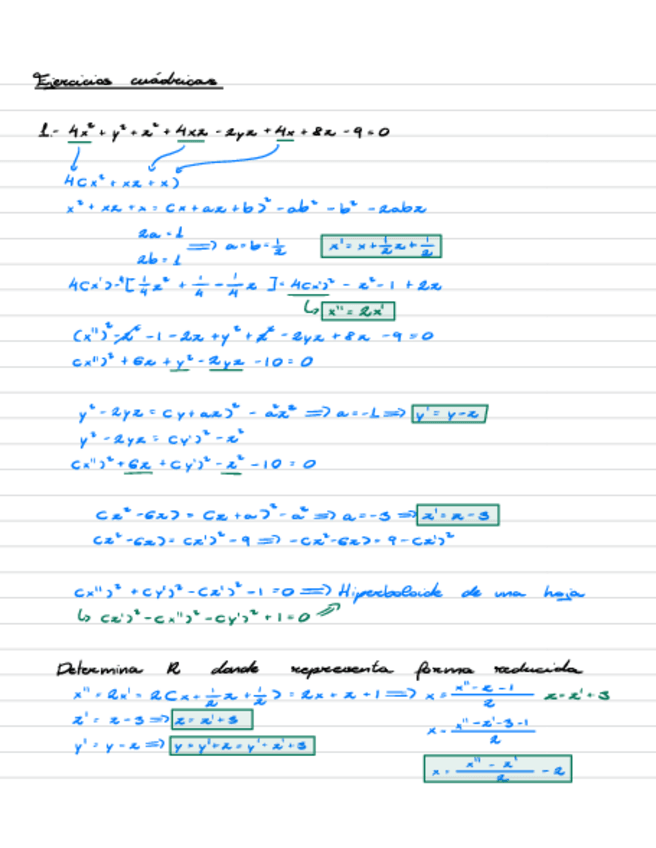 Ejercicios cuádricas
1.- 4x² + y² + z² + 4xz - 2yz + 4x + 8z - 9 = 0
4(x² + xz + x)
x² + xz + x = (x + az + b)² - az² - b² - 2abz
2a = 1
2b = 1 ⟹ a = b = 1/2   x' = x + 1/2 z + 1/2
4(x')² - 4[1/4 z² + 1/4 - 1/4 z] = 4(x')² - z² - 1 + 2z
↳ x'' = 2x'
(x'')² - z² - 1 - 2z + y² + z² - 2yz + 8z - 9 = 0
(x'')² + 6z + y² - 2yz - 10 = 0
y² - 2yz = (y + az)² - a²z² ⟹ a = -1 ⟹ y' = y - z
y² - 2yz = (y')² - z²
(x'')² + 6z + (y')² - z² - 10 = 0
(z² - 6z) = (z + a)² - a² ⟹ a = -3 ⟹ z' = z - 3
(z² - 6z) = (z')² - 9 ⟹ -(z² - 6z) = 9 - (z')²
(x'')² + (y')² - (z')² - 1 = 0 ⟹ Hiperboloide de una hoja
↳ (z')² - (x'')² - (y')² + 1 = 0
Determina R donde representa forma reducida
x'' = 2x' = 2(x + 1/2 z + 1/2) = 2x + z + 1 ⟹ x = (x'' - z - 1)/2   z = z' + 3
z' = z - 3 ⟹ z = z' + 3   x = (x'' - z' - 3 - 1)/2
y' = y - z ⟹ y = y' + z = y' + z' + 3
x = (x'' - z')/2 - 2